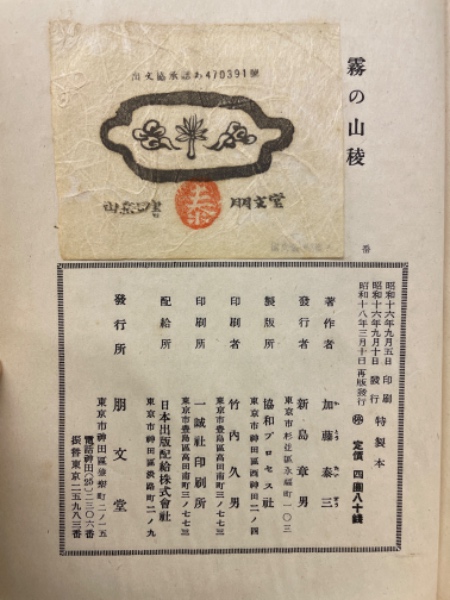 霧の山稜
出文協承認あ470391號
朋文堂
番
昭和十六年九月五日 印刷 特製本
昭和十六年九月十日 發行
昭和十八年三月十日 再版發行
定價 四圓八十錢
著作者 加藤泰三
發行者 新島章男
東京市杉並區永福町一〇三
製版所 協和プロセス社
東京市神田區西神田二ノ四
印刷者 竹内久男
東京市豊島區高田南町三ノ七七三
印刷所 一誠社印刷所
東京市豊島區高田南町三ノ七七三
配給所 日本出版配給株式會社
東京市神田區淡路町二ノ九
發行所 朋文堂
電話神田(25)二三〇六番
振替東京二五九八三番